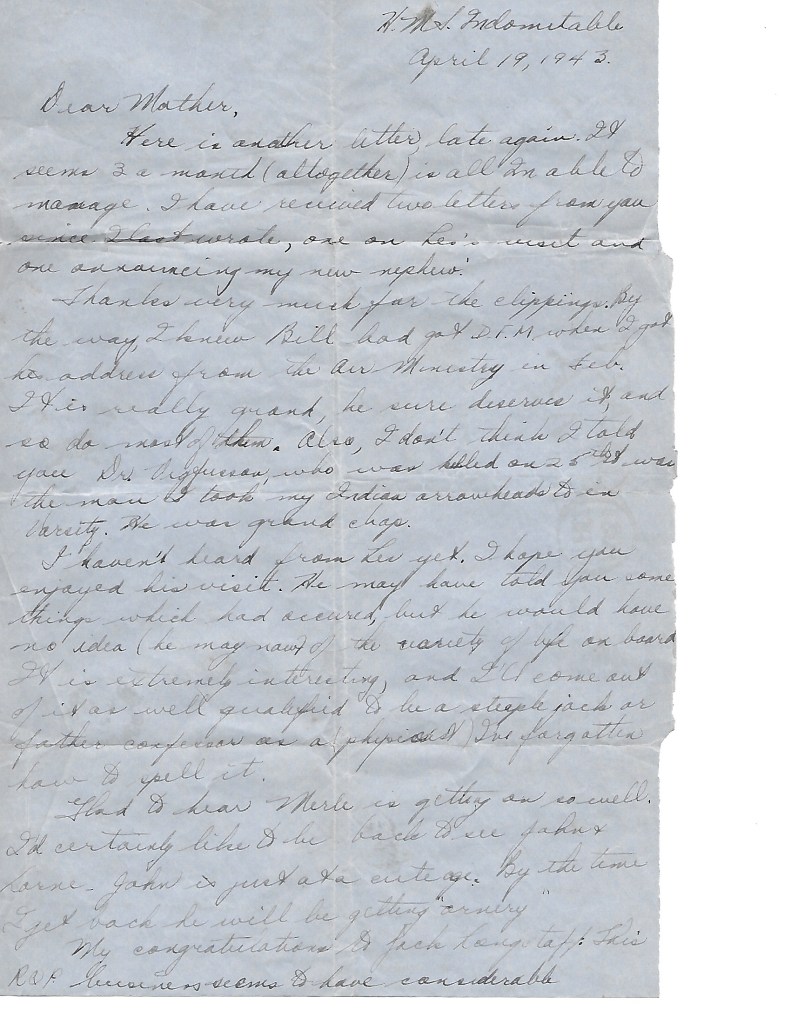 H.M.S. Indomitable
April 19, 1943.
Dear Mother,
Here is another letter, late again. It
seems 3 a month (altogether) is all Im able to
manage. I have recived two letters from you
since I last wrote, one on Les's visit and
one announcing my new nephew.
Thanks very much for the clippings. By
the way, I knew Bill had got D.F.M. when I got
his address from the Air Ministry in Feb.
It is really grand, he sure deserves it, and
so do most of them. Also, I don't think I told
you Dr. Vigfusson, who was killed on 25th was
the man I took my Indian arrowheads to in
Varsity. He was grand chap.
I haven't heard from Les yet. I hope you
enjoyed his visit. He may have told you some
things which had occured, but he would have
no idea (he may now) of the variety of life on board
It is extremely interesting, and I'll come out
of it as well qualified to be a steeple jack or
father confessor as a (physicist) I've forgotten
how to spell it.
Glad to hear Merle is getting on so well.
I'd certainly like to be back to see John &
Lorne. John is just at a cute age. By the time
I get back he will be getting "ornery"
My congratulations to Jack Longstaff. This
business seems to have considerable